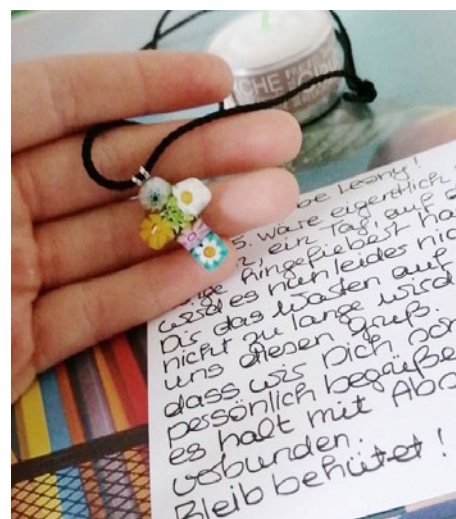 CHE
be Leony!
5. wäre eigentlich
ein Tag, auf d
hingefiebert ha
wird es nun leider nic
Dir das Warten auf
nicht zu lange wird
uns diesen Gruß.
dass wir Dich
persönlich begrüße
es halt mit Abs
verbunden.
Bleib behütet!